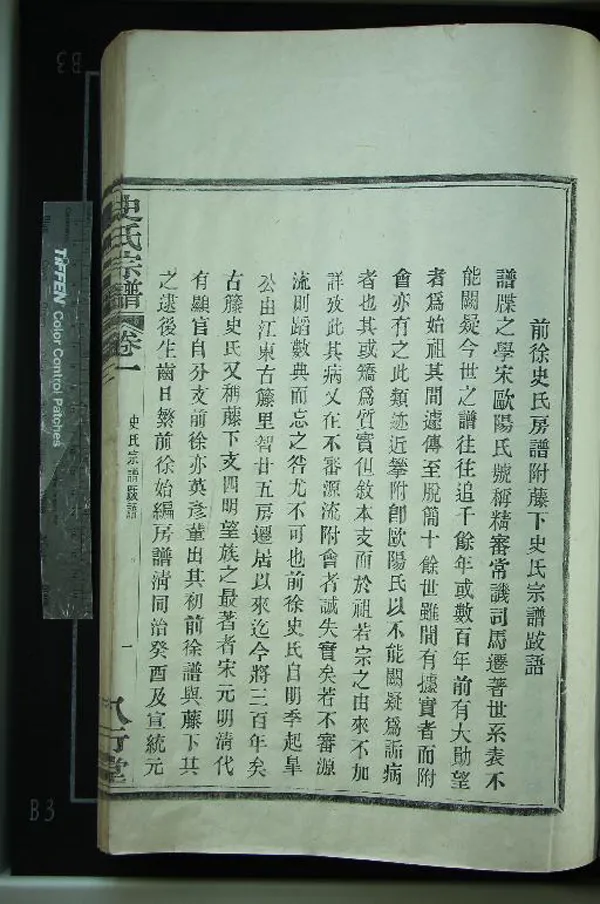 前徐史氏房譜附藤下史氏宗譜跋語
譜牒之學宋歐陽氏號稱精審常譏司馬遷著世系表不
能闕疑今世之譜往往追千餘年或數百年前有大勛望
者爲始祖其間遞傳至脫簡十餘世雖間有據實者而附
會亦有之此類迹近攀附卽歐陽氏以不能闕疑爲詬病
者也其或矯爲質實但敘本支而於祖若宗之由來不加
詳攷此其病又在不審源流附會者誠失實矣若不審源
流則蹈數典而忘之咎尤不可也前徐史氏自明季起皐
公由江東古籐里智廿五房遷居以來迄今將三百年矣
古籐史氏又稱藤下支四明望族之最著者宋元明清代
有顯官自分支前徐亦英彥輩出其初前徐譜與藤下共
之逮後生齒日繁前徐始編房譜清同治癸酉及宣統元
史氏宗譜 卷一
史氏宗譜跋語
一
八行堂
TIFFEN Color Control Patches
B3
B3